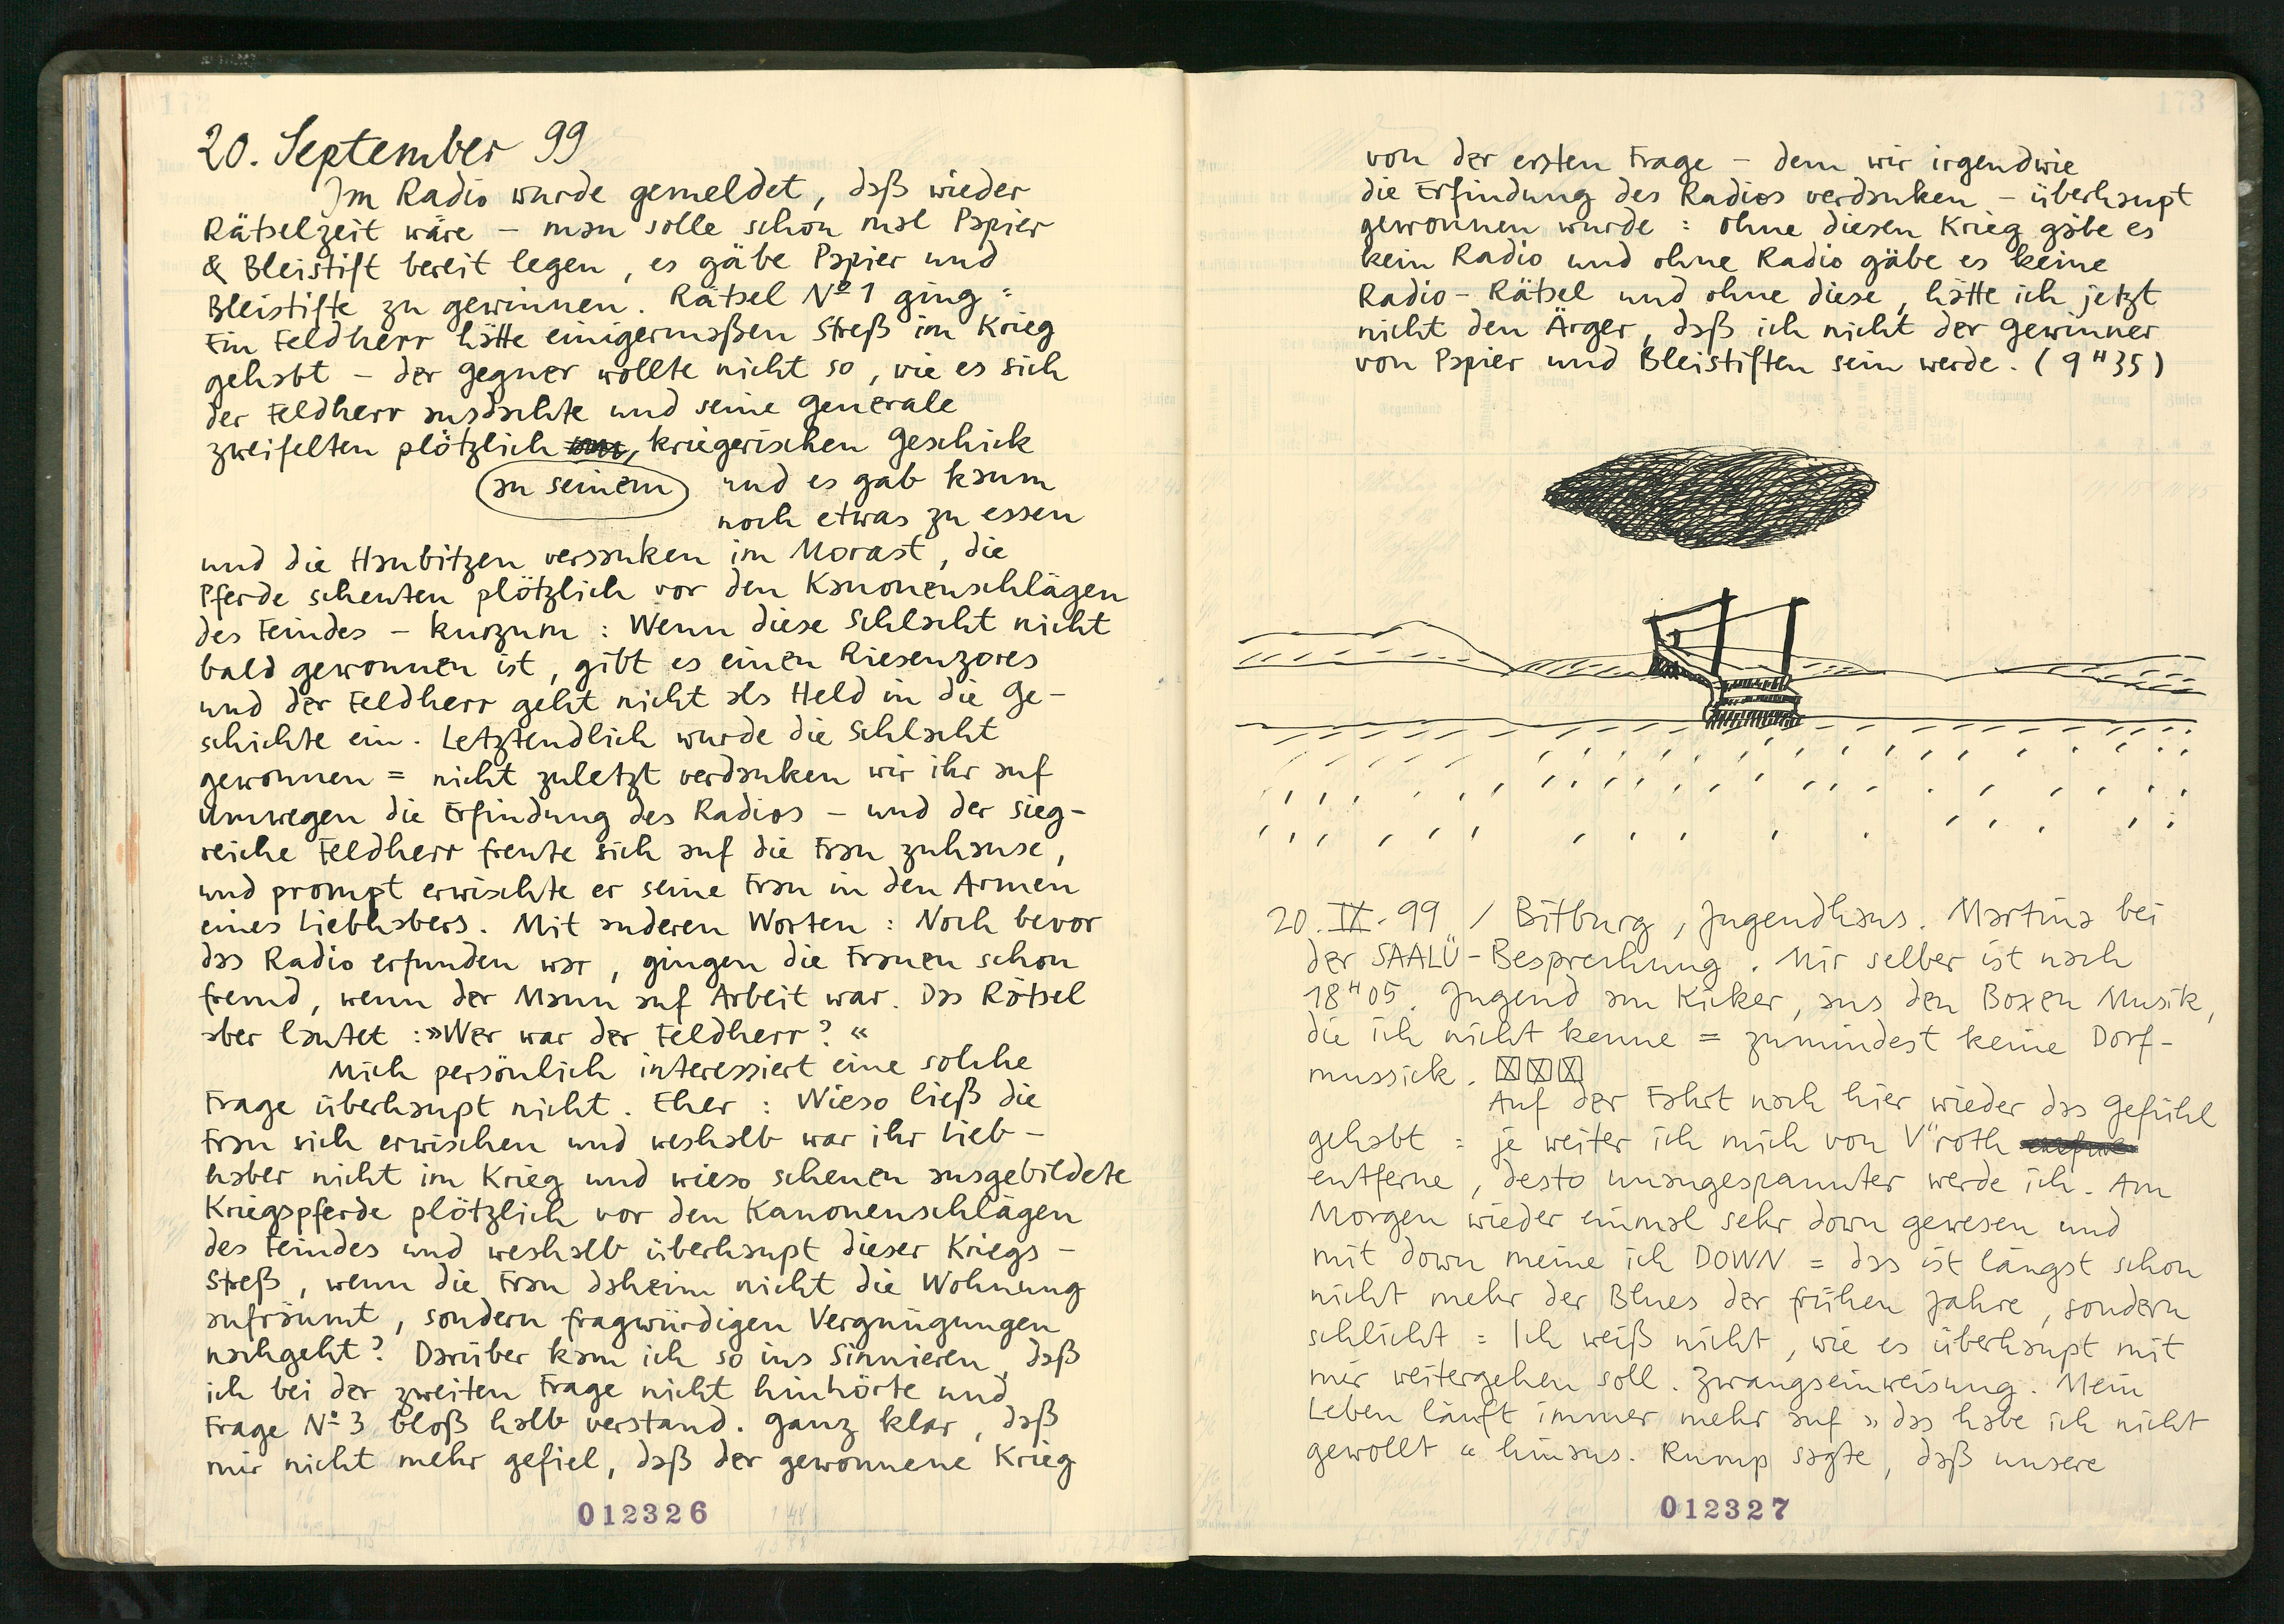 20. September 99
Im Radio wurde gemeldet, daß wieder
Rätselzeit wäre – man solle schon mal Papier
& Bleistift bereit legen, es gäbe Papier und
Bleistifte zu gewinnen. Rätsel Nº 1 ging =
Ein Feldherr hätte einigermaßen Streß im Krieg
gehabt – der Gegner wollte nicht so, wie es sich
der Feldherr ausdachte und seine Generale
zweifelten plötzlich kriegerischen Geschick
an seinem und es gab kaum
noch etwas zu essen
und die Haubitzen versanken im Morast, die
Pferde scheuten plötzlich vor den Kanonenschlägen
des Feindes – kurzum : Wenn diese Schlacht nicht
bald gewonnen ist, gibt es einen Riesenzores
und der Feldherr geht nicht als Held in die Ge-
schichte ein. Letztendlich wurde die Schlacht
gewonnen = nicht zuletzt verdanken wir ihr auf
Umwegen die Erfindung des Radios – und der sieg-
reiche Feldherr freute sich auf die Frau zuhause,
und prompt erwischte er seine Frau in den Armen
eines Liebhabers. Mit anderen Worten : Noch bevor
das Radio erfunden war, gingen die Frauen schon
fremd, wenn der Mann auf Arbeit war. Das Rätsel
aber lautet : »Wer war der Feldherr? «
Mich persönlich interessiert eine solche
Frage überhaupt nicht. Eher : Wieso ließ die
Frau sich erwischen und weshalb war ihr Lieb-
haber nicht im Krieg und wieso scheuen ausgebildete
Kriegspferde plötzlich vor den Kanonenschlägen
des Feindes und weshalb überhaupt dieser Kriegs-
streß, wenn die Frau daheim nicht die Wohnung
aufräumt, sondern fragwürdigen Vergnügungen
nachgeht? Darüber kam ich so ins Sinnieren, daß
ich bei der zweiten Frage nicht hinhörte und
Frage Nº 3 bloß halb verstand. Ganz klar, daß
mir nicht mehr gefiel, daß der gewonnene Krieg
012326
173
von der ersten Frage – dem wir irgendwie
die Erfindung des Radios verdanken – überhaupt
gewonnen wurde : ohne diesen Krieg gäbe es
kein Radio und ohne Radio gäbe es keine
Radio-Rätsel und ohne diese, hätte ich jetzt
nicht den Ärger, daß ich nicht der Gewinner
von Papier und Bleistiften sein werde. (9 H 35)
20. IX. 99 / Bitburg, Jugendhaus. Martina bei
der SAALÜ-Besprechung. Mir selber ist nach
18 H 05. Jugend am Kicker, aus den Boxen Musik,
die ich nicht kenne = zumindest keine Dorf-
mussick.
Auf der Fahrt nach hier wieder das Gefühl
gehabt = je weiter ich mich von V"roth
entferne, desto unangespannter werde ich. Am
Morgen wieder einmal sehr down gewesen und
mit down meine ich DOWN = das ist längst schon
nicht mehr der Blues der frühen Jahre, sondern
schlicht = Ich weiß nicht, wie es überhaupt mit
mir weitergehen soll. Zwangseinweisung. Mein
Leben läuft immer mehr auf » das habe ich nicht
gewollt « hinaus. Rump sagte, daß unsere
012327